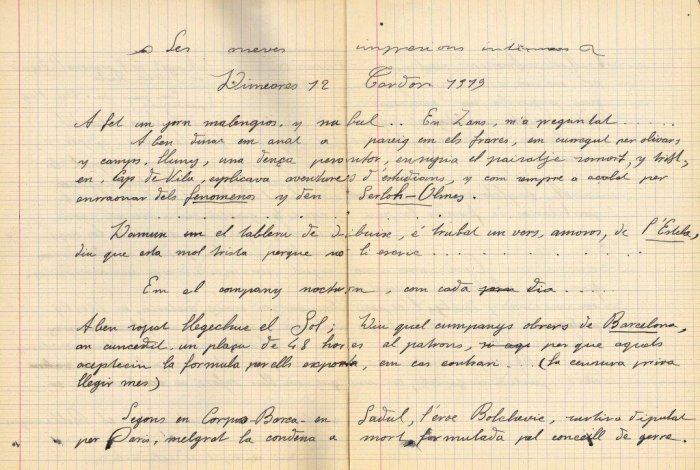 Les meves impresions intimes
Dimecres 12 Tardor 1919
A fet un jorn malengios, y nubul . . En Zans, m'a preguntat . . . . .
A ben dinar em anat a pareig em els frares, em curregut per olivars
y camps. Lluny, una densa perentor, ensupia el pairatje romort, y trist,
en Cap de Vila, esplicava aventures d'estudians, y com sempre a acabat per
enraonar dels fenomenos y d'en Serloh-Olmes.
Damun un el tableru de dibuixe, é trubat un vers, amoros, de l'Estela,
diu que esta mol trista perque no li escric . . . . . . . . . . .
Em el company nocturn, com cada dia . . . .
A ben sopat llegechue el Sol; Diu quel cumpanys obrers de Barcelona,
an cuncedit un plaça de 48 hores al patrons, per que aquets
aceptecin la formula per ells exposta, em cas contrari . . . (la censura priva
llegir mes)
Segons en Corpus-Barca-en Sadul, l'eroe Bolchevic, surtira diputat
per Paris, melgrat la condena a mort formulada pel concell de gerra.